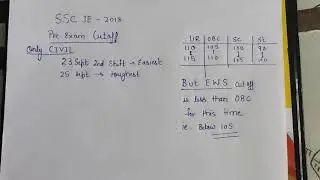 SSC JE - 2018
Pre Exam Cutoff
Only CIVIL
23 Sept 2nd Shift → Easiest
25 Sept → toughest
UR OBC SC ST
110 105 100 90
115 110
But EWS cutoff
is less than OBC
for this time
ie Below 105